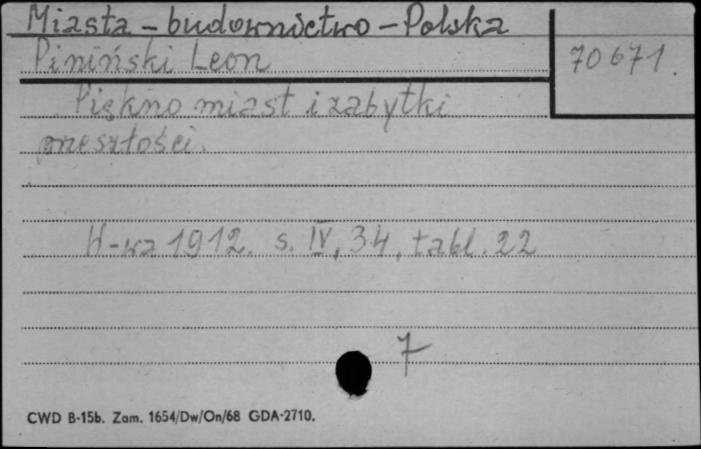 Miasta – budownictwo – Polska
Piniński Leon
70671.
Piękno miast i zabytki
przeszłości.
W-wa 1912. s. IV, 34, tabl. 22
7
CWD B-15b. Zam. 1654/Dw/On/68 GDA-2710.